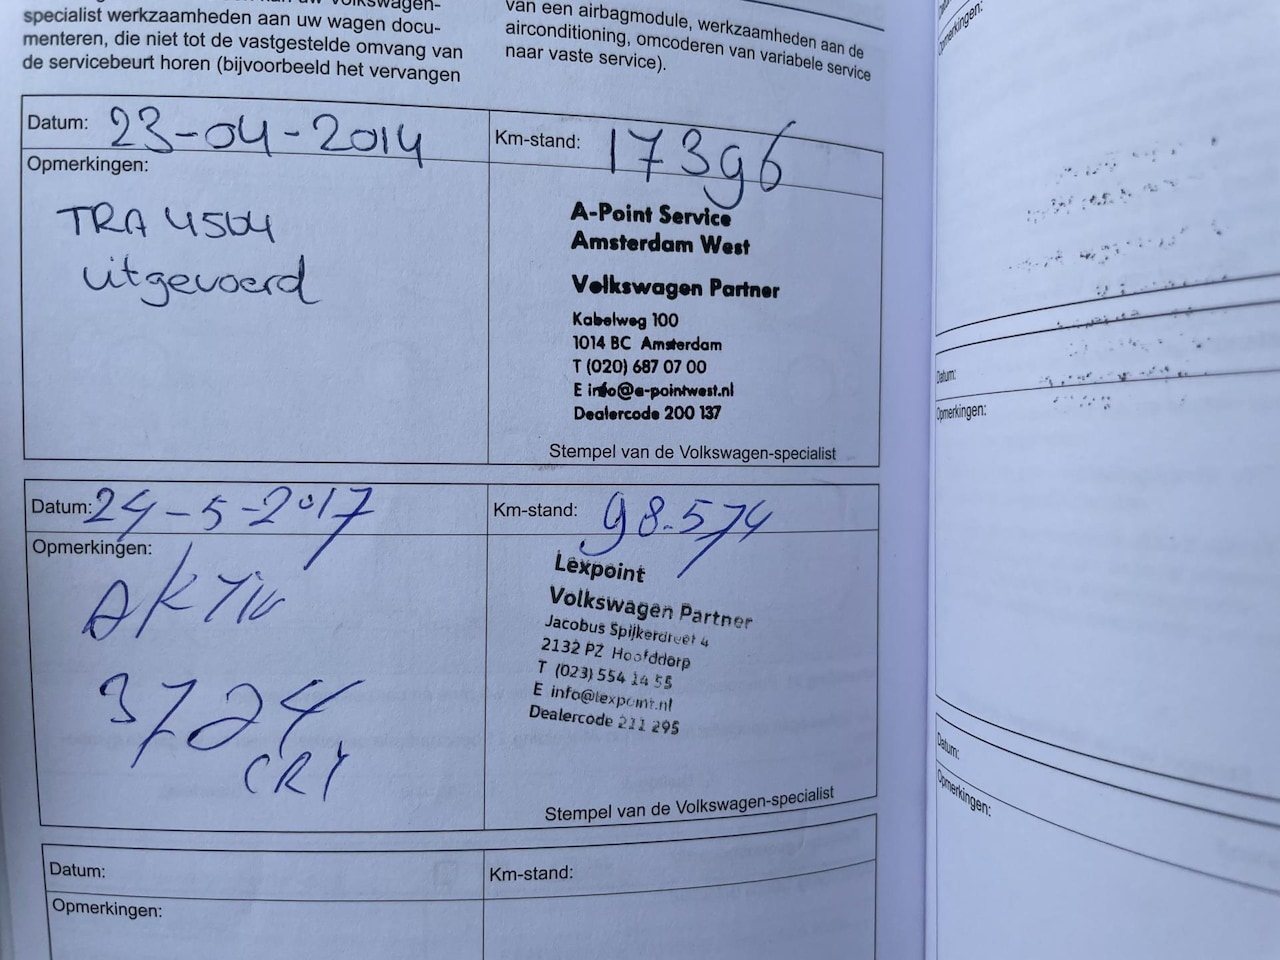 specialist werkzaamheden aan uw wagen docu-
menteren, die niet tot de vastgestelde omvang van
de servicebeurt horen (bijvoorbeeld het vervangen
van een airbagmodule, werkzaamheden aan de
airconditioning, omcoderen van variabele service
naar vaste service).
Datum: 23-04-2014
Km-stand: 17396
Opmerkingen:
TRA 4504
uitgevoerd
A-Point Service
Amsterdam West
Volkswagen Partner
Kabelweg 100
1014 BC Amsterdam
T (020) 687 07 00
E info@a-pointwest.nl
Dealercode 200 137
Stempel van de Volkswagen-specialist
Datum: 24-5-2017
Km-stand: 98.574
Opmerkingen:
AKTIE
Lexpoint
Volkswagen Partner
Jacobus Spijkerdreef 4
2132 PZ Hoofddorp
T (023) 554 14 55
E info@lexpoint.nl
Dealercode 211 295
Stempel van de Volkswagen-specialist
Datum:
Km-stand:
Opmerkingen:
Opmerkingen:
Datum:
Opmerkingen:
Datum:
Opmerkingen: